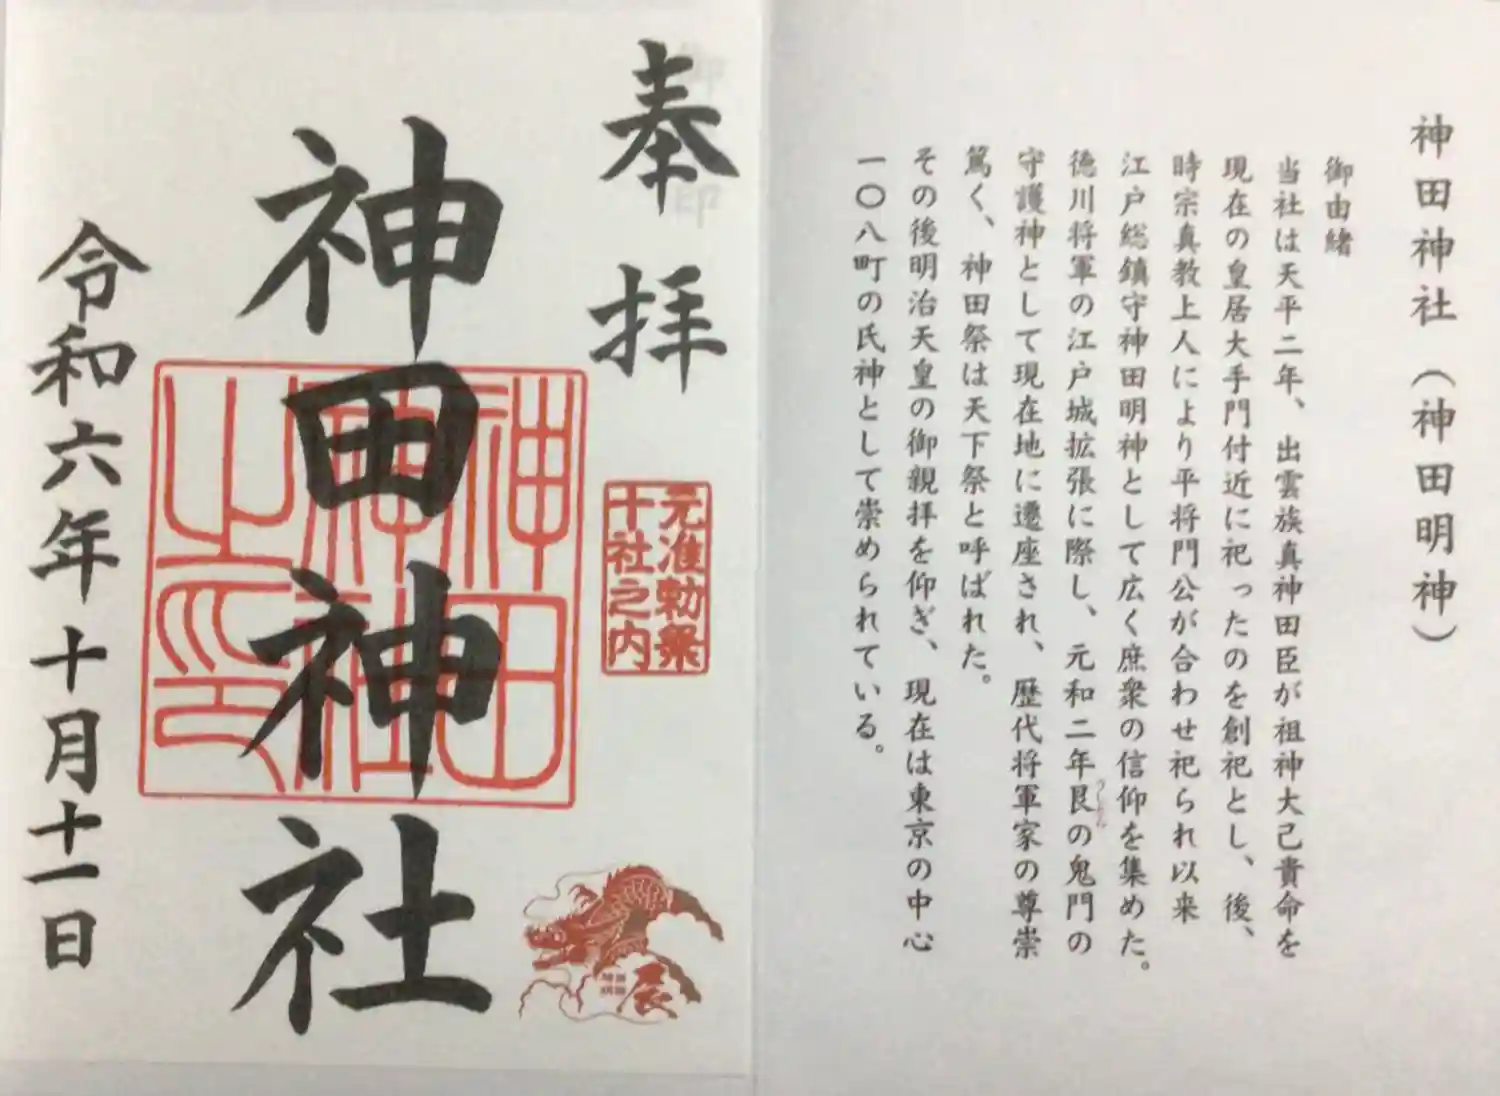 神田神社（神田明神）
御由緒
当社は天平二年、出雲族真神田臣が祖神大己貴命を
現在の皇居大手門付近に祀ったのを創祀とし、後、
時宗真教上人により平将門公が合わせ祀られ以来
江戸総鎮守神田明神として広く庶衆の信仰を集めた。
徳川将軍の江戸城拡張に際し、元和二年艮の鬼門の
守護神として現在地に遷座され、歴代将軍家の尊崇
篤く、神田祭は天下祭と呼ばれた。
その後明治天皇の御親拝を仰ぎ、現在は東京の中心
一〇八町の氏神として崇められている。
奉拝
元准勅祭
十社之内
神田神社
神田
神社
之印
辰
令和六年十月十一日